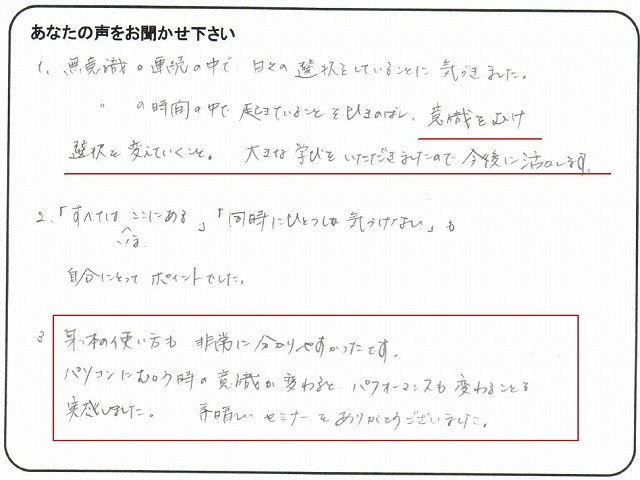 あなたの声をお聞かせ下さい
1、無意識の連続の中で 日々の選択をしていることに気づきました。
〃 の時間の中で 起きていることをひきのばし、意識をむけ
選択を変えていくこと。 大きな学びをいただきましたので 今後に活かします。
2、「すべては ここにある」「同時にひとつしか気づけない」も
いま
自分にとって ポイントでした。
3 体の使い方も 非常に分かりやすかったです。
パソコンにむかう時の意識が変わると、パフォーマンスも変わることを
実感しました。 素晴しいセミナーをありがとうございました。